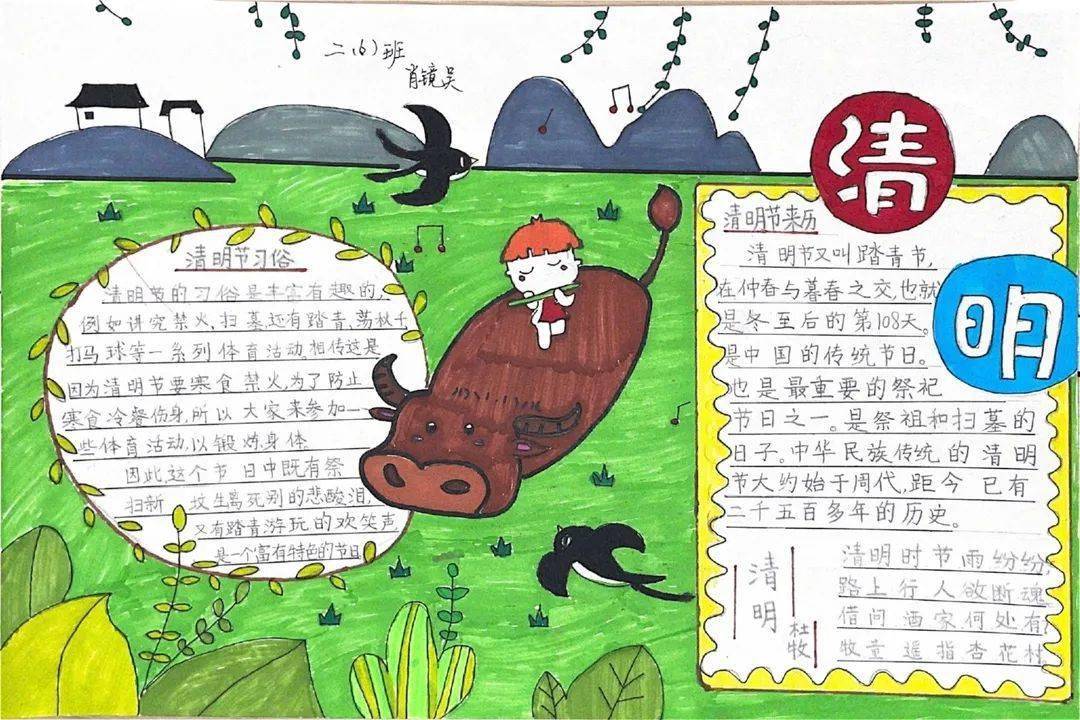 二(6)班
肖镜吴
清明节习俗
清明节的习俗是丰富有趣的,
例如讲究禁火,扫墓还有踏青,荡秋千
打马球等一系列体育活动,相传这是
因为清明节要寒食禁火,为了防止
寒食冷餐伤身,所以大家来参加一
些体育活动,以锻炼身体
因此,这个节日中既有祭
扫新坟生离死别的悲酸泪,
又有踏青游玩的欢笑声,
是一个富有特色的节日
清
明
清明节来历
清明节又叫踏青节,
在仲春与暮春之交,也就
是冬至后的第108天。
是中国的传统节日。
也是最重要的祭祀
节日之一。是祭祖和扫墓的
日子。中华民族传统的清明
节大约始于周代,距今已有
二千五百多年的历史。
清明
杜牧
清明时节雨纷纷,
路上行人欲断魂
借问酒家何处有
牧童遥指杏花村